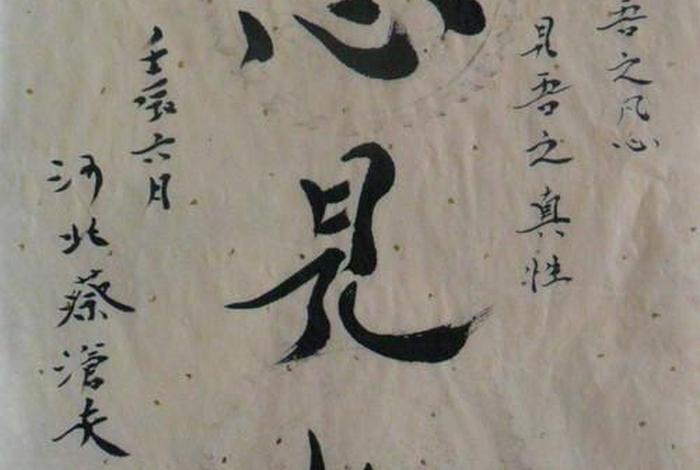 吾之凡心
見吾之真性
心見
壬
六月
河北蔡滄夫